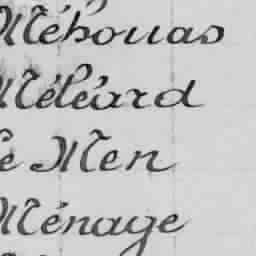 Méhouas
Méléard
Le Men
Ménage